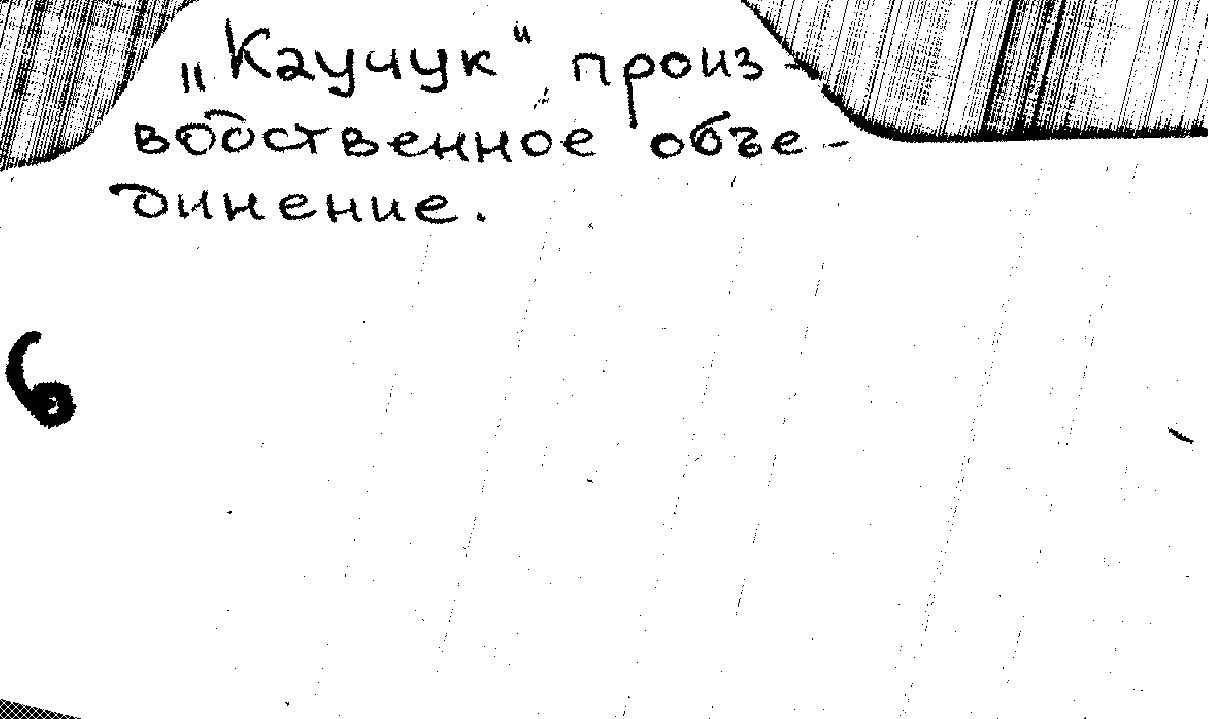 „Каучук“ произ-
водственное объе-
динение.
6